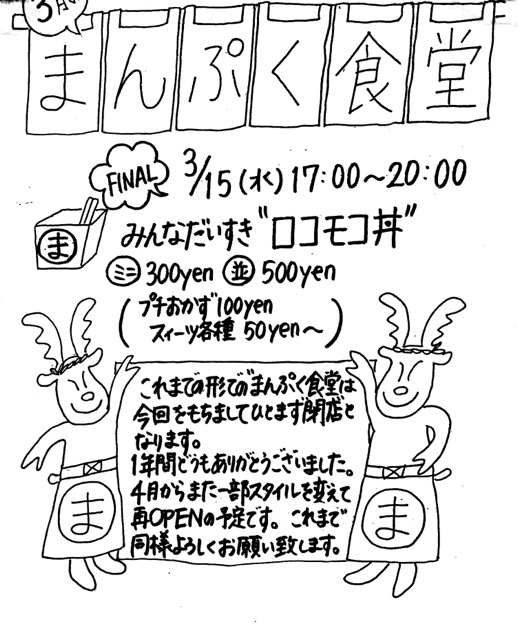 まんぷく食堂
FINAL
3/15(水)17:00～20:00
ま
みんなだいすき"ロコモコ丼"
ミニ 300yen 並 500yen
(プチおかず100yen
スィーツ各種 50yen～)
これまでの形での"まんぷく食堂は
今回をもちましてひとまず閉店と
なります。
1年間どうもありがとうございました。
4月からまた一部スタイルを変えて
再OPENの予定です。これまで
同様よろしくお願い致します。
ま
ま